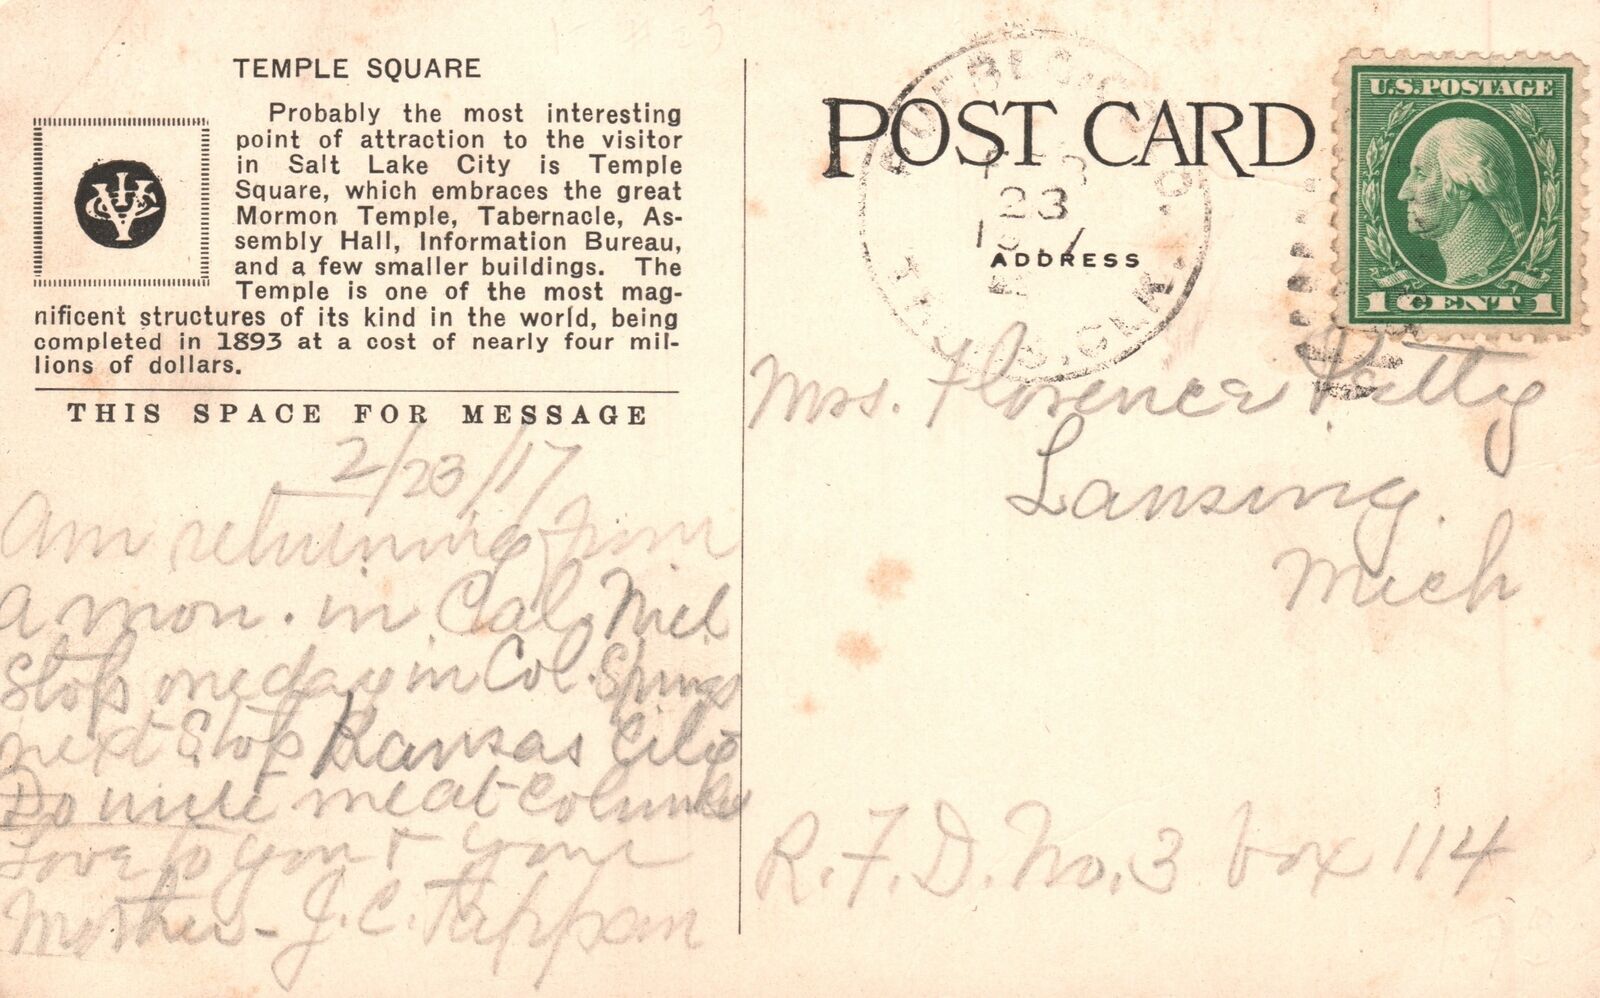 TEMPLE SQUARE
Probably the most interesting
point of attraction to the visitor
in Salt Lake City is Temple
Square, which embraces the great
Mormon Temple, Tabernacle, As-
sembly Hall, Information Bureau,
and a few smaller buildings. The
Temple is one of the most mag-
nificent structures of its kind in the world, being
completed in 1893 at a cost of nearly four mil-
lions of dollars.
THIS SPACE FOR MESSAGE
2/23/17
Am returning from
a mon. in Cal. Will
Stop one day in Col. Springs
next Stop Kansas City
Do write me at Columbus
Love to you & your
Mother - J. C. Tappan
POST CARD
ADDRESS
23
U.S. POSTAGE
1 CENT 1
Mrs. Florence
Lansing
Mich
R.F.D. No. 3 box 114